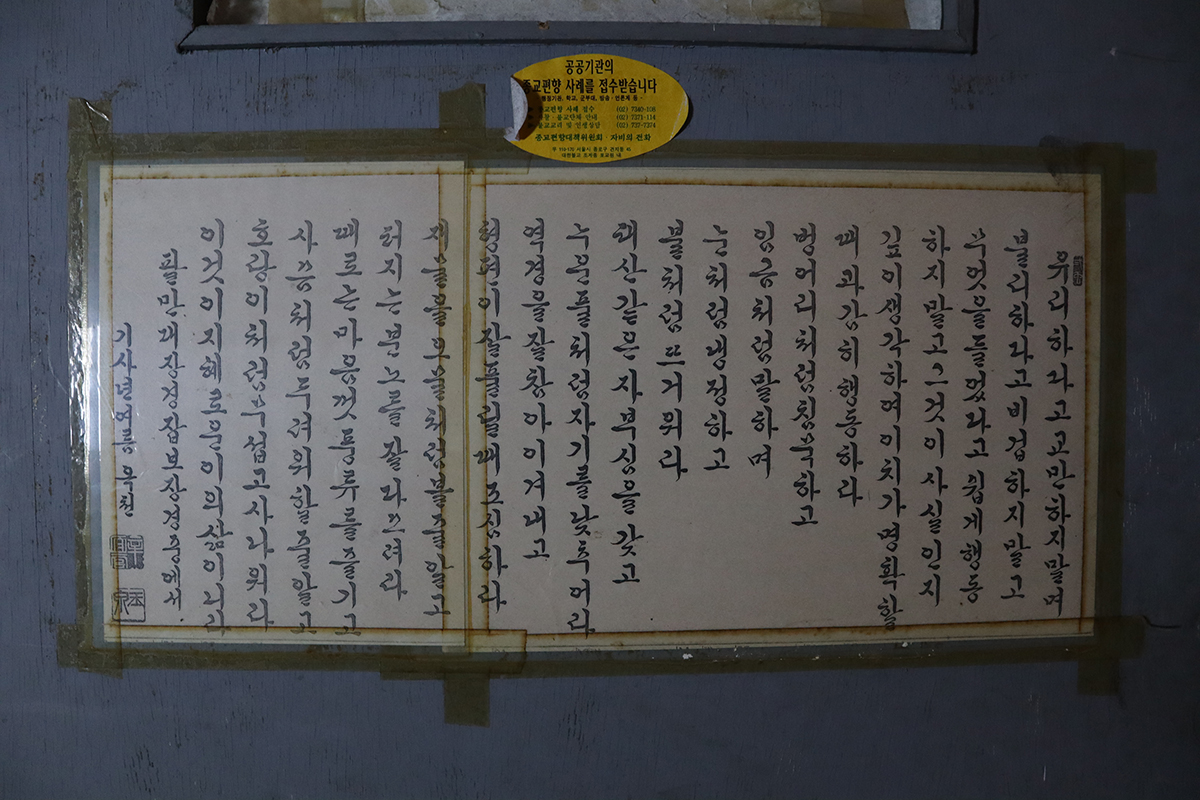 공공기관의
종교편향 사례를 접수받습니다
행정기관, 학교, 군부대, 방송·언론계 등
종교편향 사례 접수 (02) 7340-108
불교단체 안내 (02) 7371-114
불교교리 및 인생상담 (02) 737-7374
종교편향대책위원회·자비의 전화
유리하다고 교만하지말며
불리하다고 비겁하지말고
무엇을 들었다고 쉽게 행동
하지말고 그것이 사실인지
깊이 생각하여 이치가 명확할
때 과감히 행동하라
벙어리처럼 침묵하고
임금처럼 말하며
눈처럼 냉정하고
불처럼 뜨거워라
태산같은 자부심을 갖고
누운 풀처럼 자기를 낮추어라
역경을 잘 참아 이겨내고
형편이 잘 풀릴 때 조심하라
재물을 오물처럼 볼 줄 알고
터지는 분노를 잘 다스려라
때로는 마음껏 풍류를 즐기고
사슴처럼 두려워할 줄 알고
호랑이처럼 무섭고 사나워라
이것이 지혜로운 이의 삶이니라
팔만대장경 잡보장경 중에서
기사년 여름